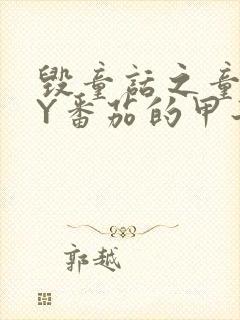 毁童话之童
Y番茄的甲
郭越